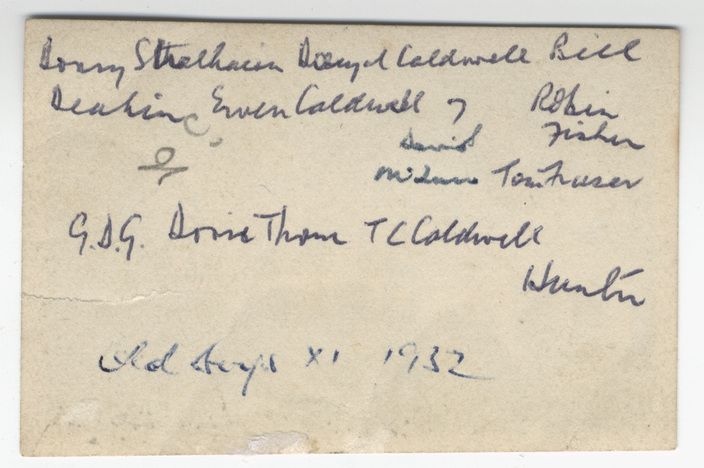 Strathairn Caldwell Bill
Deakin Ewen Caldwell ? Robin
David Fisher
Tom Fraser
G.D.G. Thom T C Caldwell
Hunter
Old Boys XI 1932